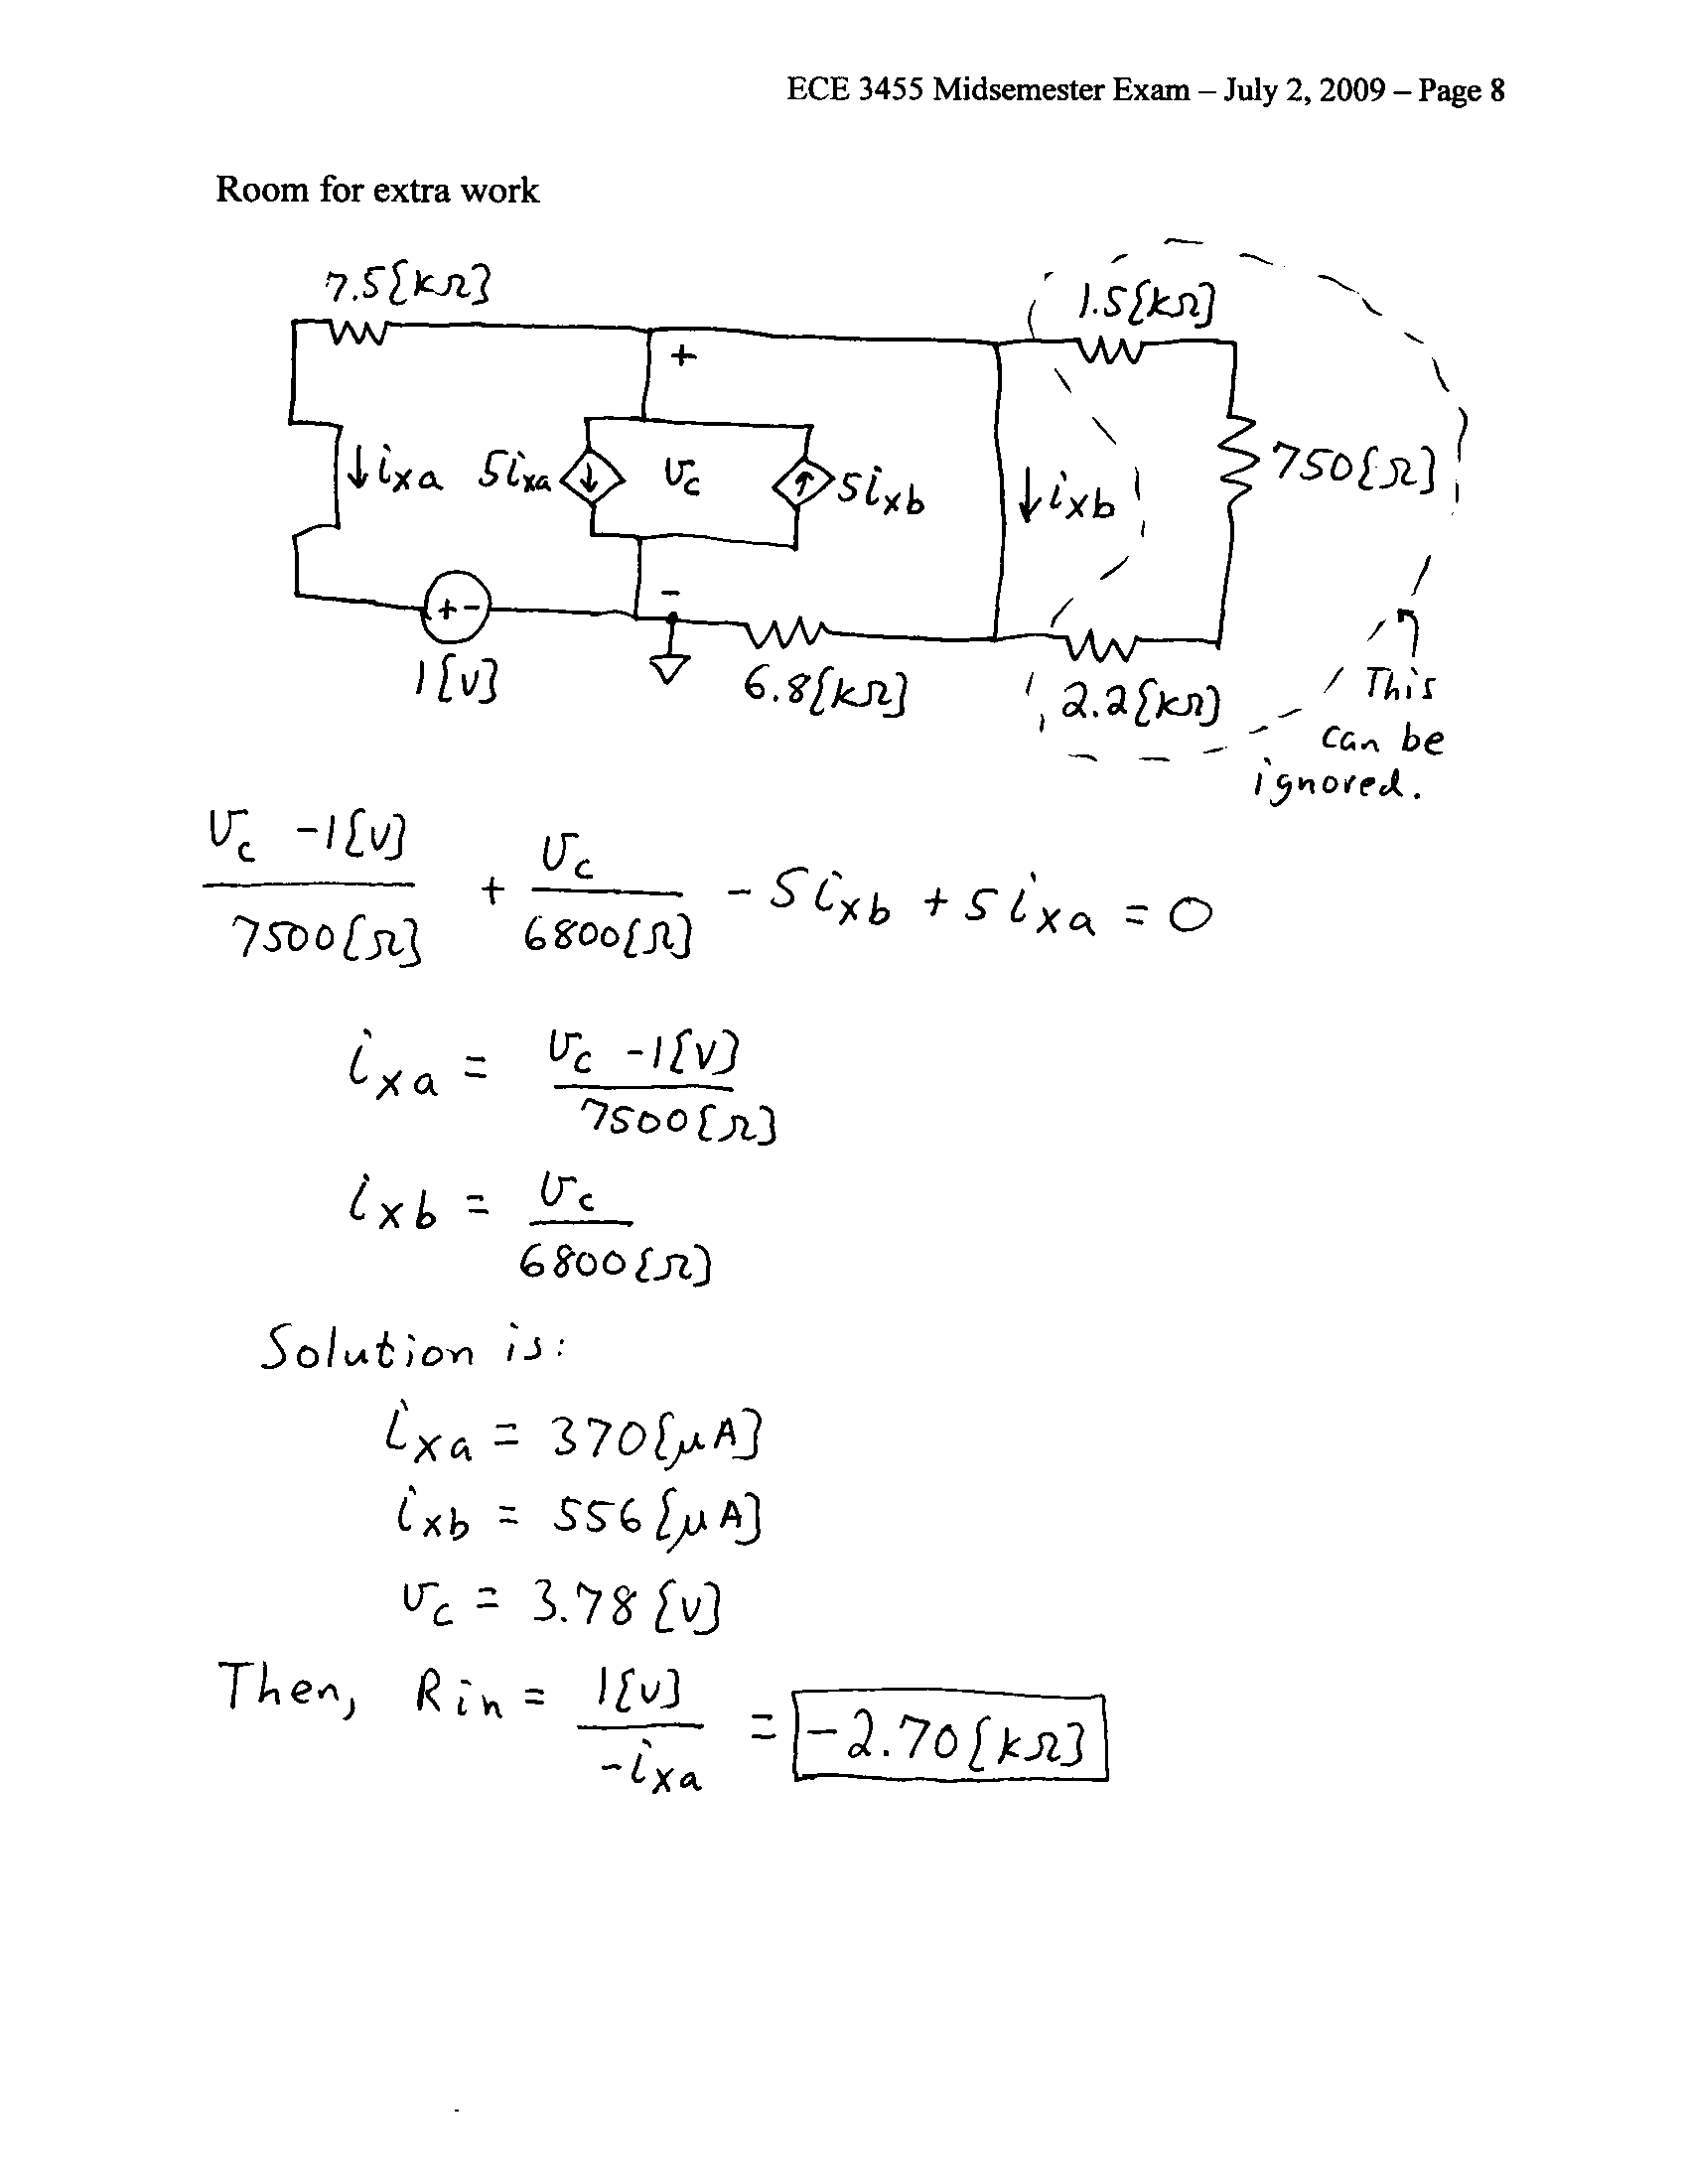 ECE 3455 Midsemester Exam – July 2, 2009 – Page 8
Room for extra work
7.5{kΩ}
1.5{kΩ}
+
↓ixa 5ixa vc 5ixb ↓ixb 750{Ω}
+ - -
1{V} 6.8{kΩ} 2.2{kΩ}
This
can be
ignored.
(vc - 1{V})/7500{Ω} + vc/6800{Ω} - 5ixb + 5ixa = 0
ixa = (vc - 1{V})/7500{Ω}
ixb = vc/6800{Ω}
Solution is:
ixa = 370{μA}
ixb = 556{μA}
vc = 3.78{V}
Then, Rin = 1{V}/-ixa = -2.70{kΩ}